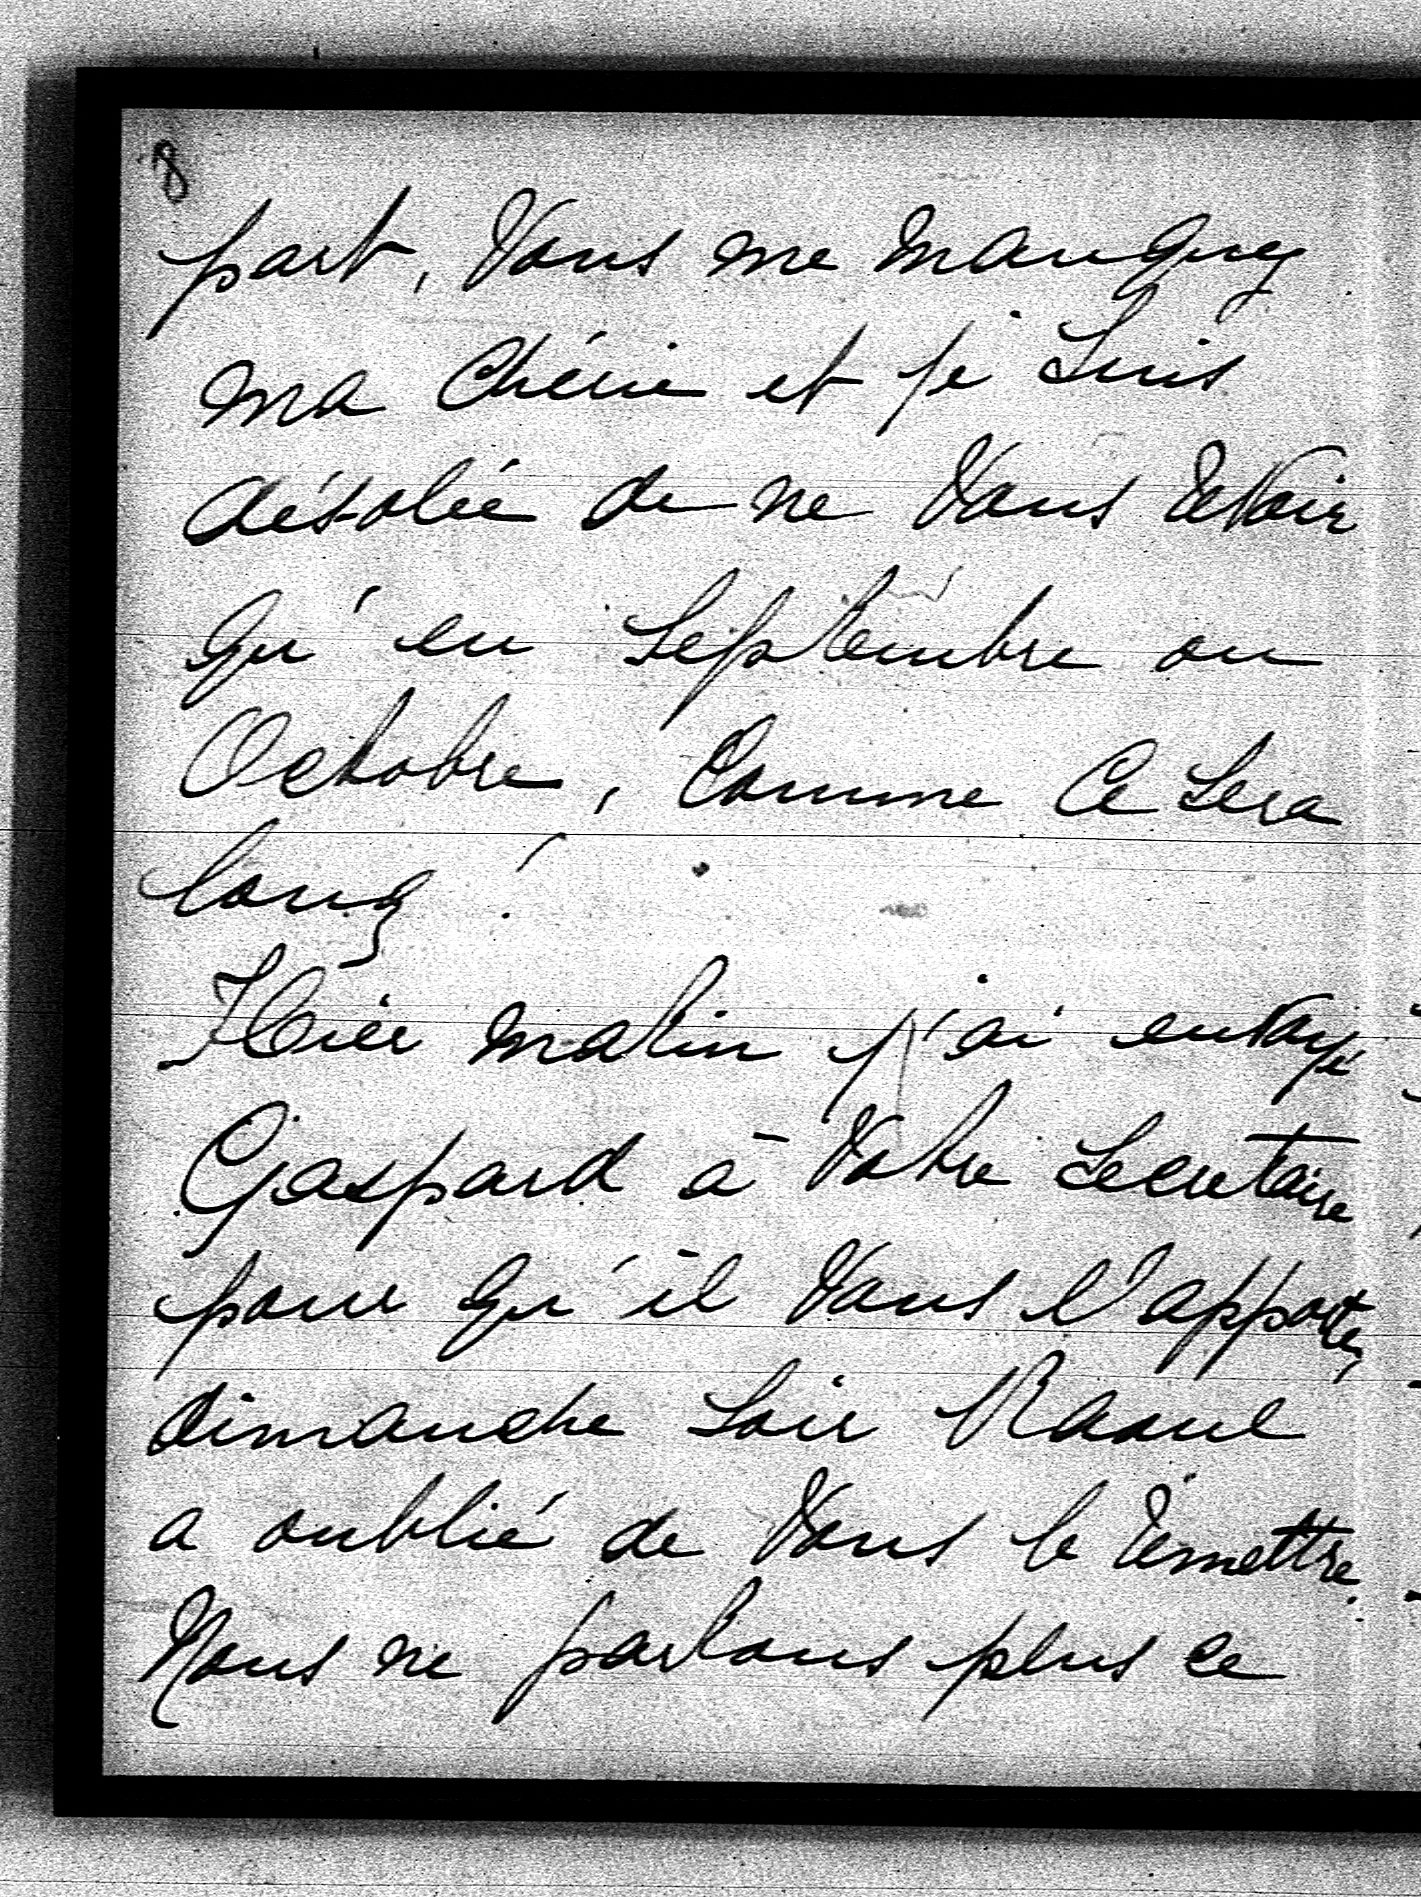 8
part, Vous me manquez
ma Chérie et je Suis
désolée de ne Vous reVoir
qu'en Septembre ou
Octobre, Comme Ce Sera
long !
Hier matin j'ai enVoyé
Gaspard à Votre Secretaire
pour qu'il Vous l'apporte,
dimanche Soir Raoul
a oublié de Vous le remettre.
Nous ne partons plus ce